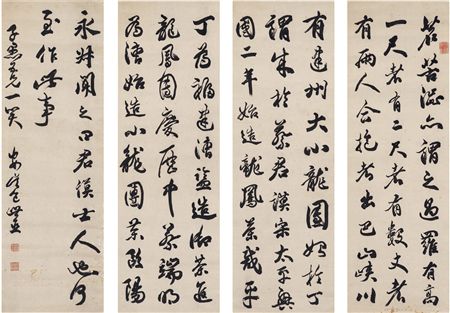 茗苦澀亦謂之過羅有高
一尺者有二尺者有數丈者
有兩人合抱者出巴山峽川
有建州大小龍團始於丁
謂成於蔡君謨宋太平興
國二年始造龍鳳茶咸平
丁為福建漕監造御茶進
龍鳳團慶曆中蔡端明
為漕始造小龍團茶歐陽
永叔聞之曰君謨士人也何
至作此事
一笑
安吳包世臣